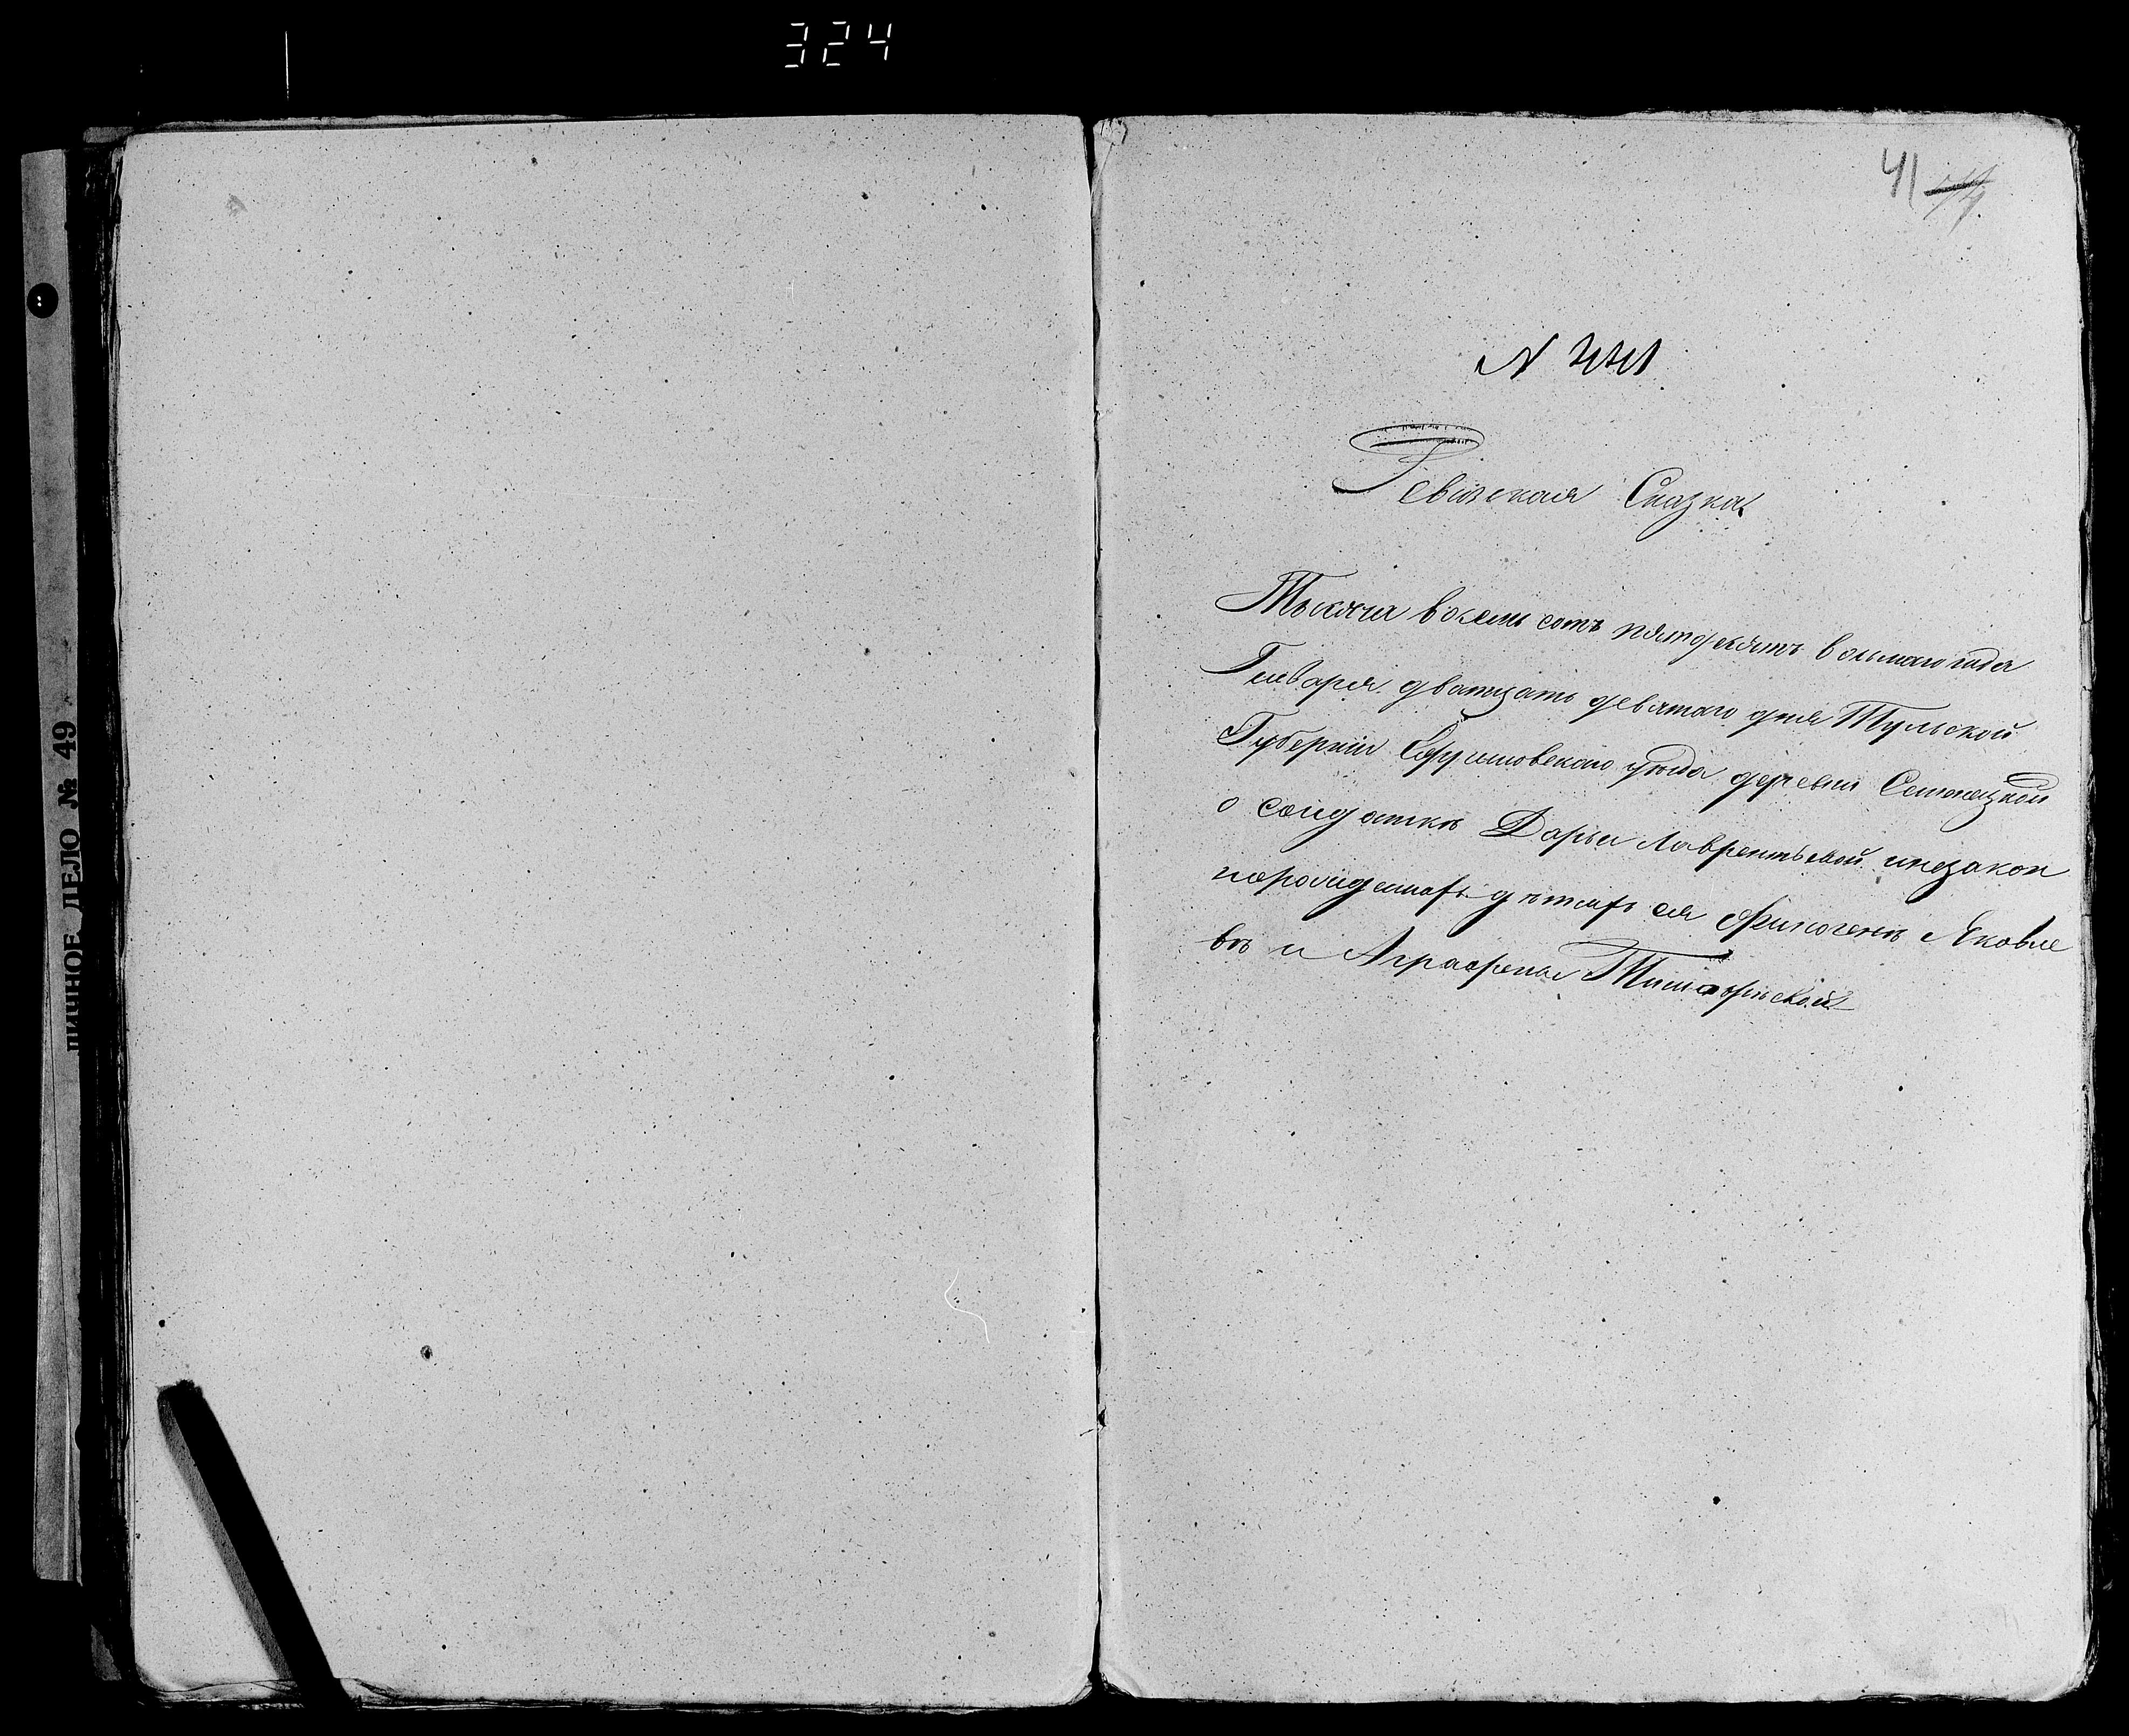 324
ЛИЧНОЕ ДЕЛО № 49
41
N 441
Ревизская Сказка
Тысяча восемь сотъ пятдесятъ восьмаго года
Генваря дватцать девятаго дня Тульской
Губерніи Ефремовскаго уѣзда деревни
о солдаткѣ Дарьи Лаврентьевой инезакон
норожденныхъ дѣтяхъ ея Финогенѣ Яковле
вѣ и Аграфены